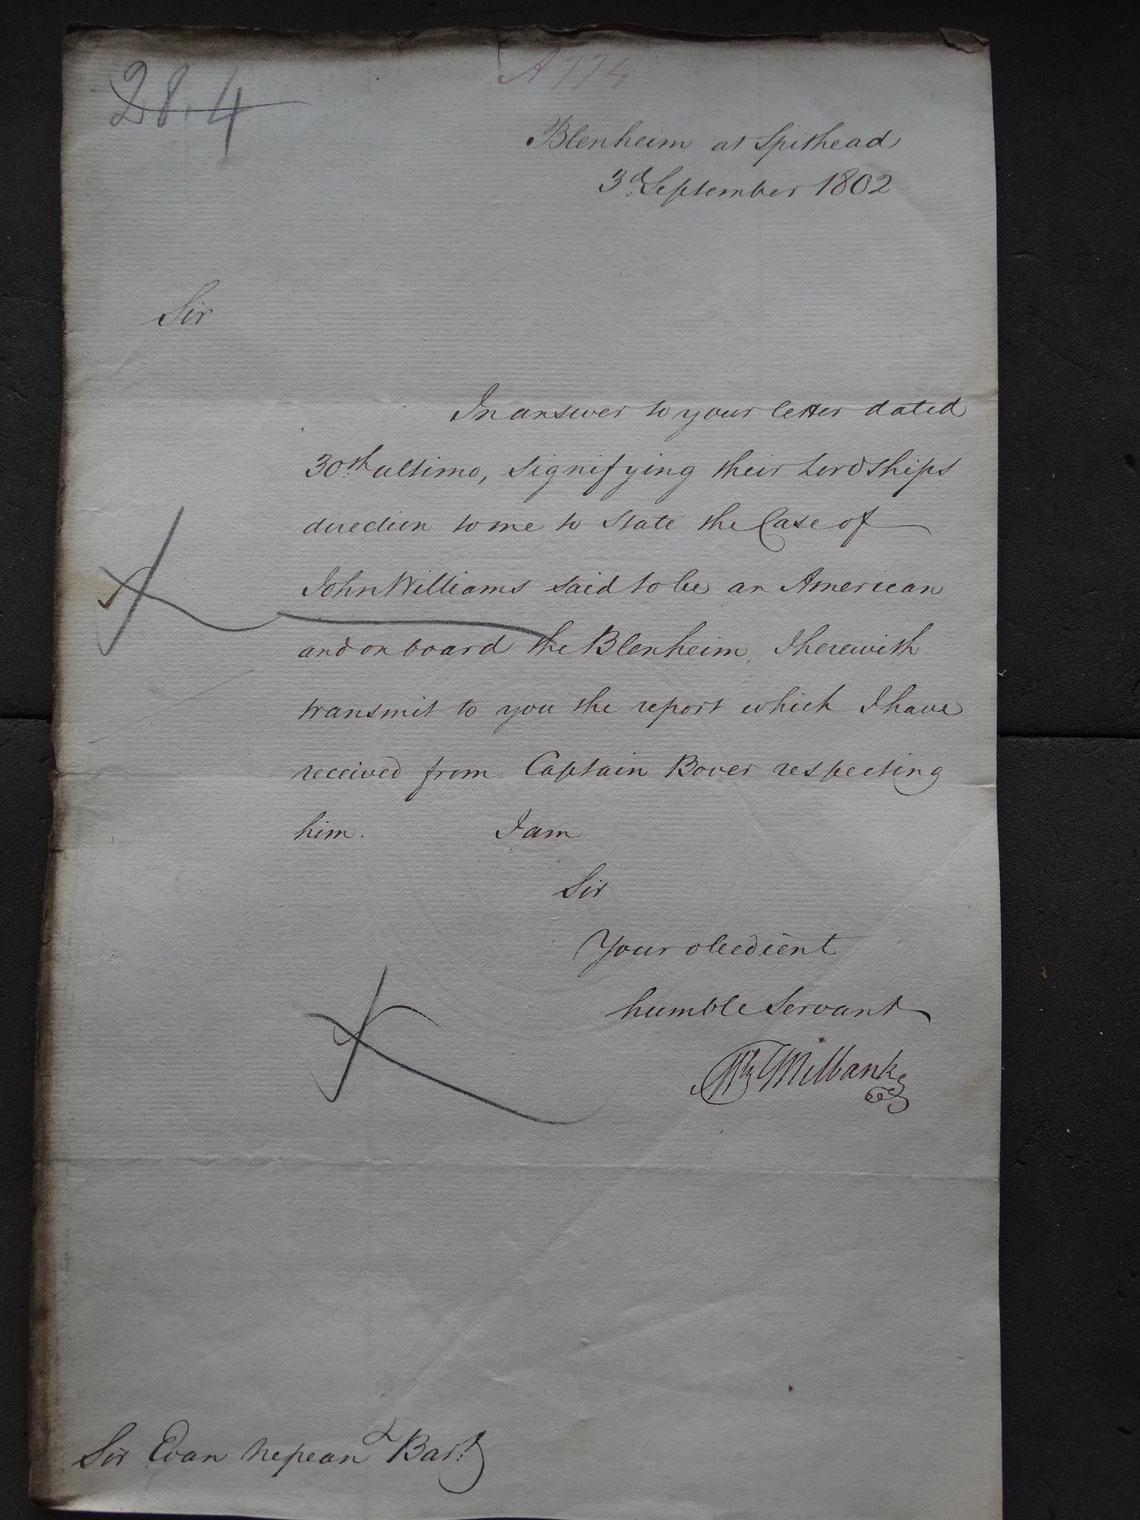 28.4
A774
Blenheim at Spithead
3d. September 1802
Sir
In answer to your letter dated
30th. ultimo, signifying their Lordships
direction to me to State the Case of
John Williams said to be an American
and on board the Blenheim, I herewith
transmit to you the report which I have
received from Captain Bover respecting
him. I am
Sir
Your obedient
humble Servant
Milbanke
Sir Evan Nepean Bart.